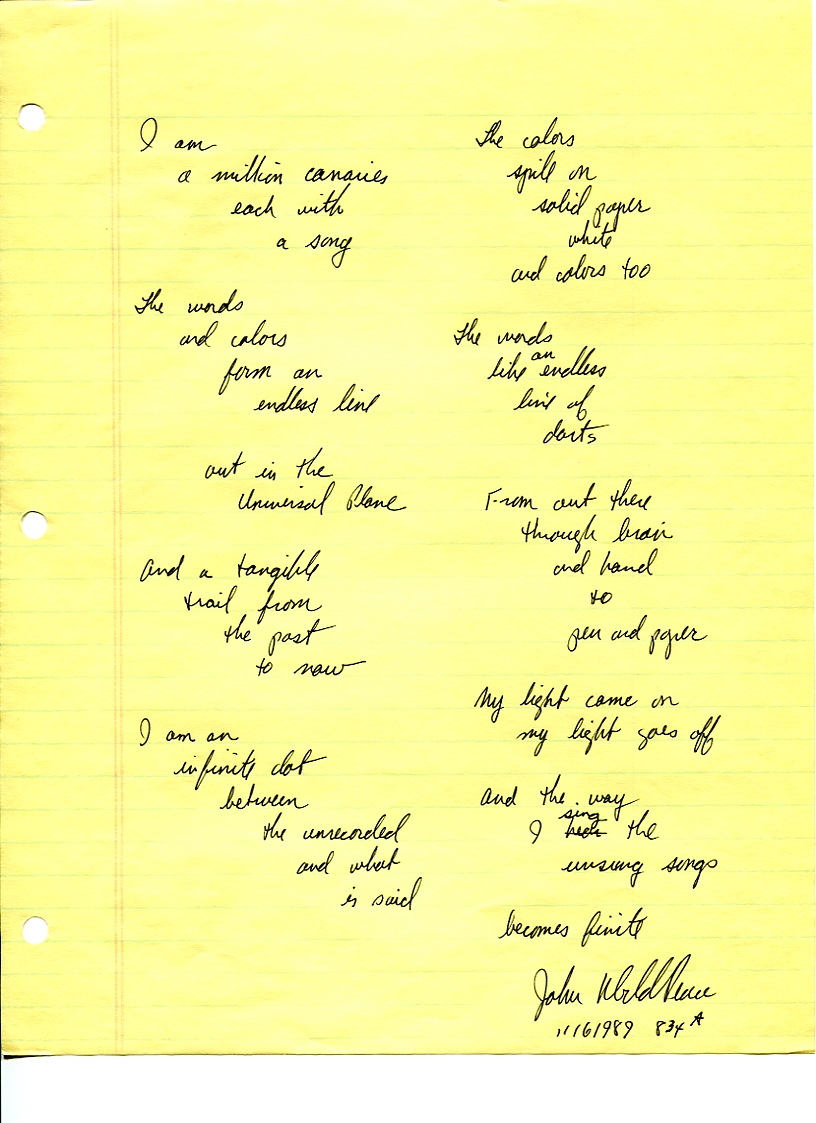 I am
a million canaries
each with
a song
The words
and colors
form an
endless line
out in the
Universal Plane
And a tangible
trail from
the past
to now
I am an
infinite dot
between
the unrecorded
and what
is said
The colors
spill on
solid paper
white
and colors too
The words
like an endless
line of
darts
From out there
through brain
and hand
to
pen and paper
My light came on
my light goes off
and the way
I sing the
unsung songs
becomes finite
John WorldPeace
11161989 834 A